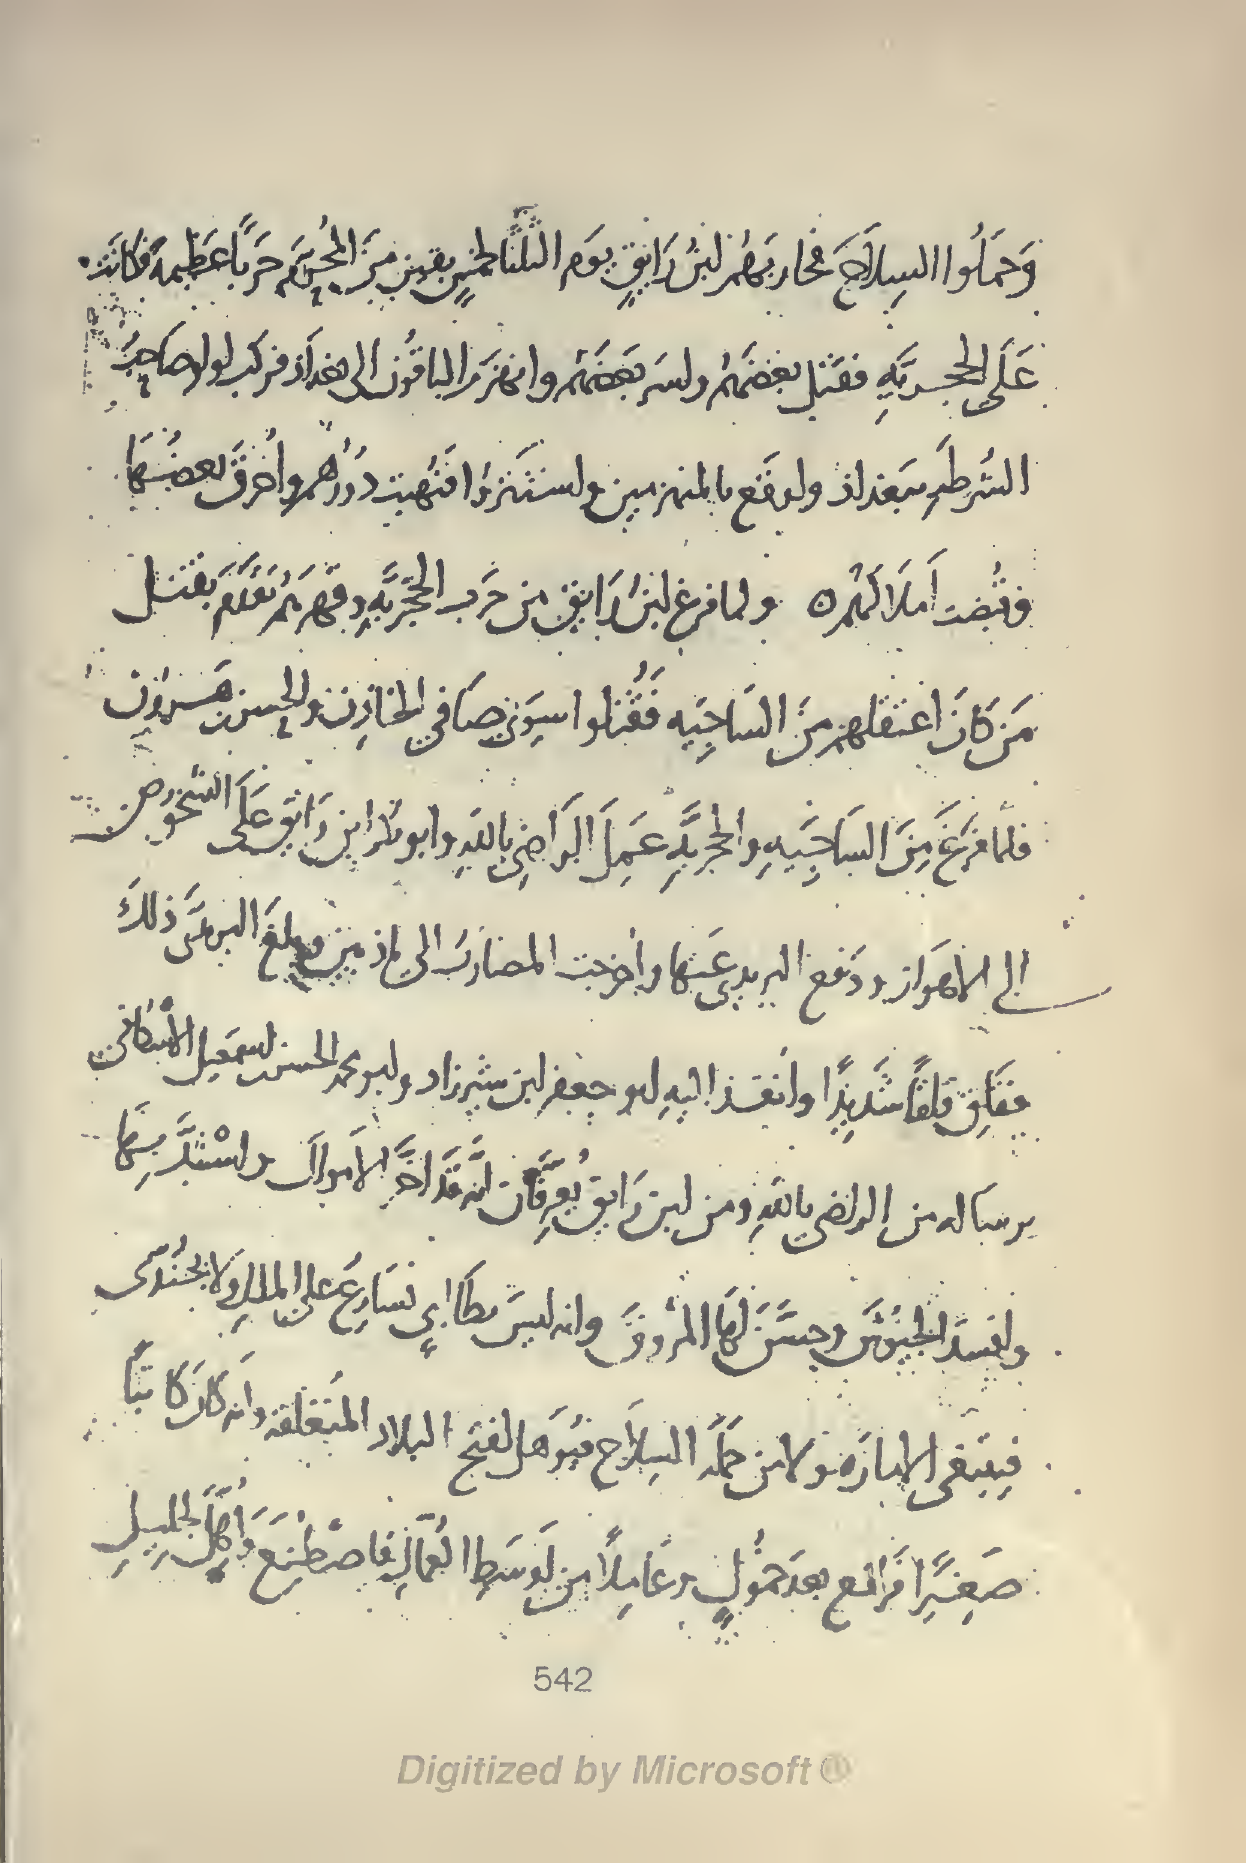 وَحَمَلُوا السِلاحَ فحاربَهُم ابنُ رَايقٍ يوَم الثلثا لخمسٍ بقين مِنَ المُحرَّم حَربًا عَظِيمة فكانت
عَلَى الحجريَّهِ فقتل بعضَهُم واسر بَعضَهُم وانهزمَ الباقُون الى بغداذ فركب لولو صَاحِبُ
الشُرطهِ ببَغداذ واوقَع بالمنهزمين واستَتَروُا فنُهبت دُورُهم واُحرقَ بعضُهَا
وقُبضت اَملَاكهُم ه ولما فرغ ابنُ رَايقٍ من حَرب الحُجَريَّهِ وقَهرهُم تقدَّمَ بقتل
مَن كانَ اعتقلهم مِنَ السَاجِيه فَقُتلوا سِوَى صَافي الخازِن والحسن بن هَرونَ
فلمَّا فرَغَ مِنَ السَاجِيهِ والحجريَّهِ عَمِلَ الرَاضِي بالله وابو بكر ابن رَايق عَلَى الشخوص
الى الاهوَاز ودَفع البريدي عَنها واُخرجت المضارب الى باذبين وبلغَ البريدى ذلكَ
فقَلِق قلقًا شَديدًا واُنفذ اليهِ ابو جعفر ابن شيرزاد وابو محمد الحسن بن اسمعيل الاُسْكافي
برسَاله من الراضي بالله ومن ابن رَايق يُعرِّفَانه انَّه قَد اخَّر الاَموالَ واسْتبَدَّ بِهَا
وافسدَ الجيُوشَ وحسَّنَ لهَا المُروقَ وانه ليسَ بطالبيٍ نسَارِعُ على الملك ولا بجُندى
فينبغى الامارَه ولا من حَمَلَه السِلاَح فيُوهل لفتح البلاد المُنغلقه وانه كانَ كاتبًا
صَغِيرًا فرَافع بعدَ خمُولٍ وعَامِلاً من اوسَطِ العُمَّالِ فاصْطُنِعَ وَاُهِّلَ لجليلِ
542
Digitized by Microsoft ®